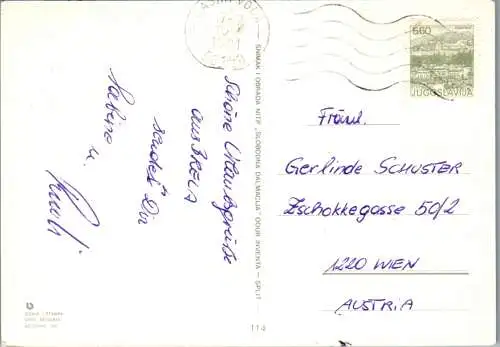 Schöne Urlaubsgrüße
aus BRELA
sendet Dir
Sabine u.
SNIMAK I OBRADA NITP „SLOBODNA DALMACIJA” OOUR INVENTA — SPLIT
114
5.60
JUGOSLAVIJA
Fräul.
Gerlinde SCHUSTER
Zschokkegasse 50/2
1220 WIEN
AUSTRIA